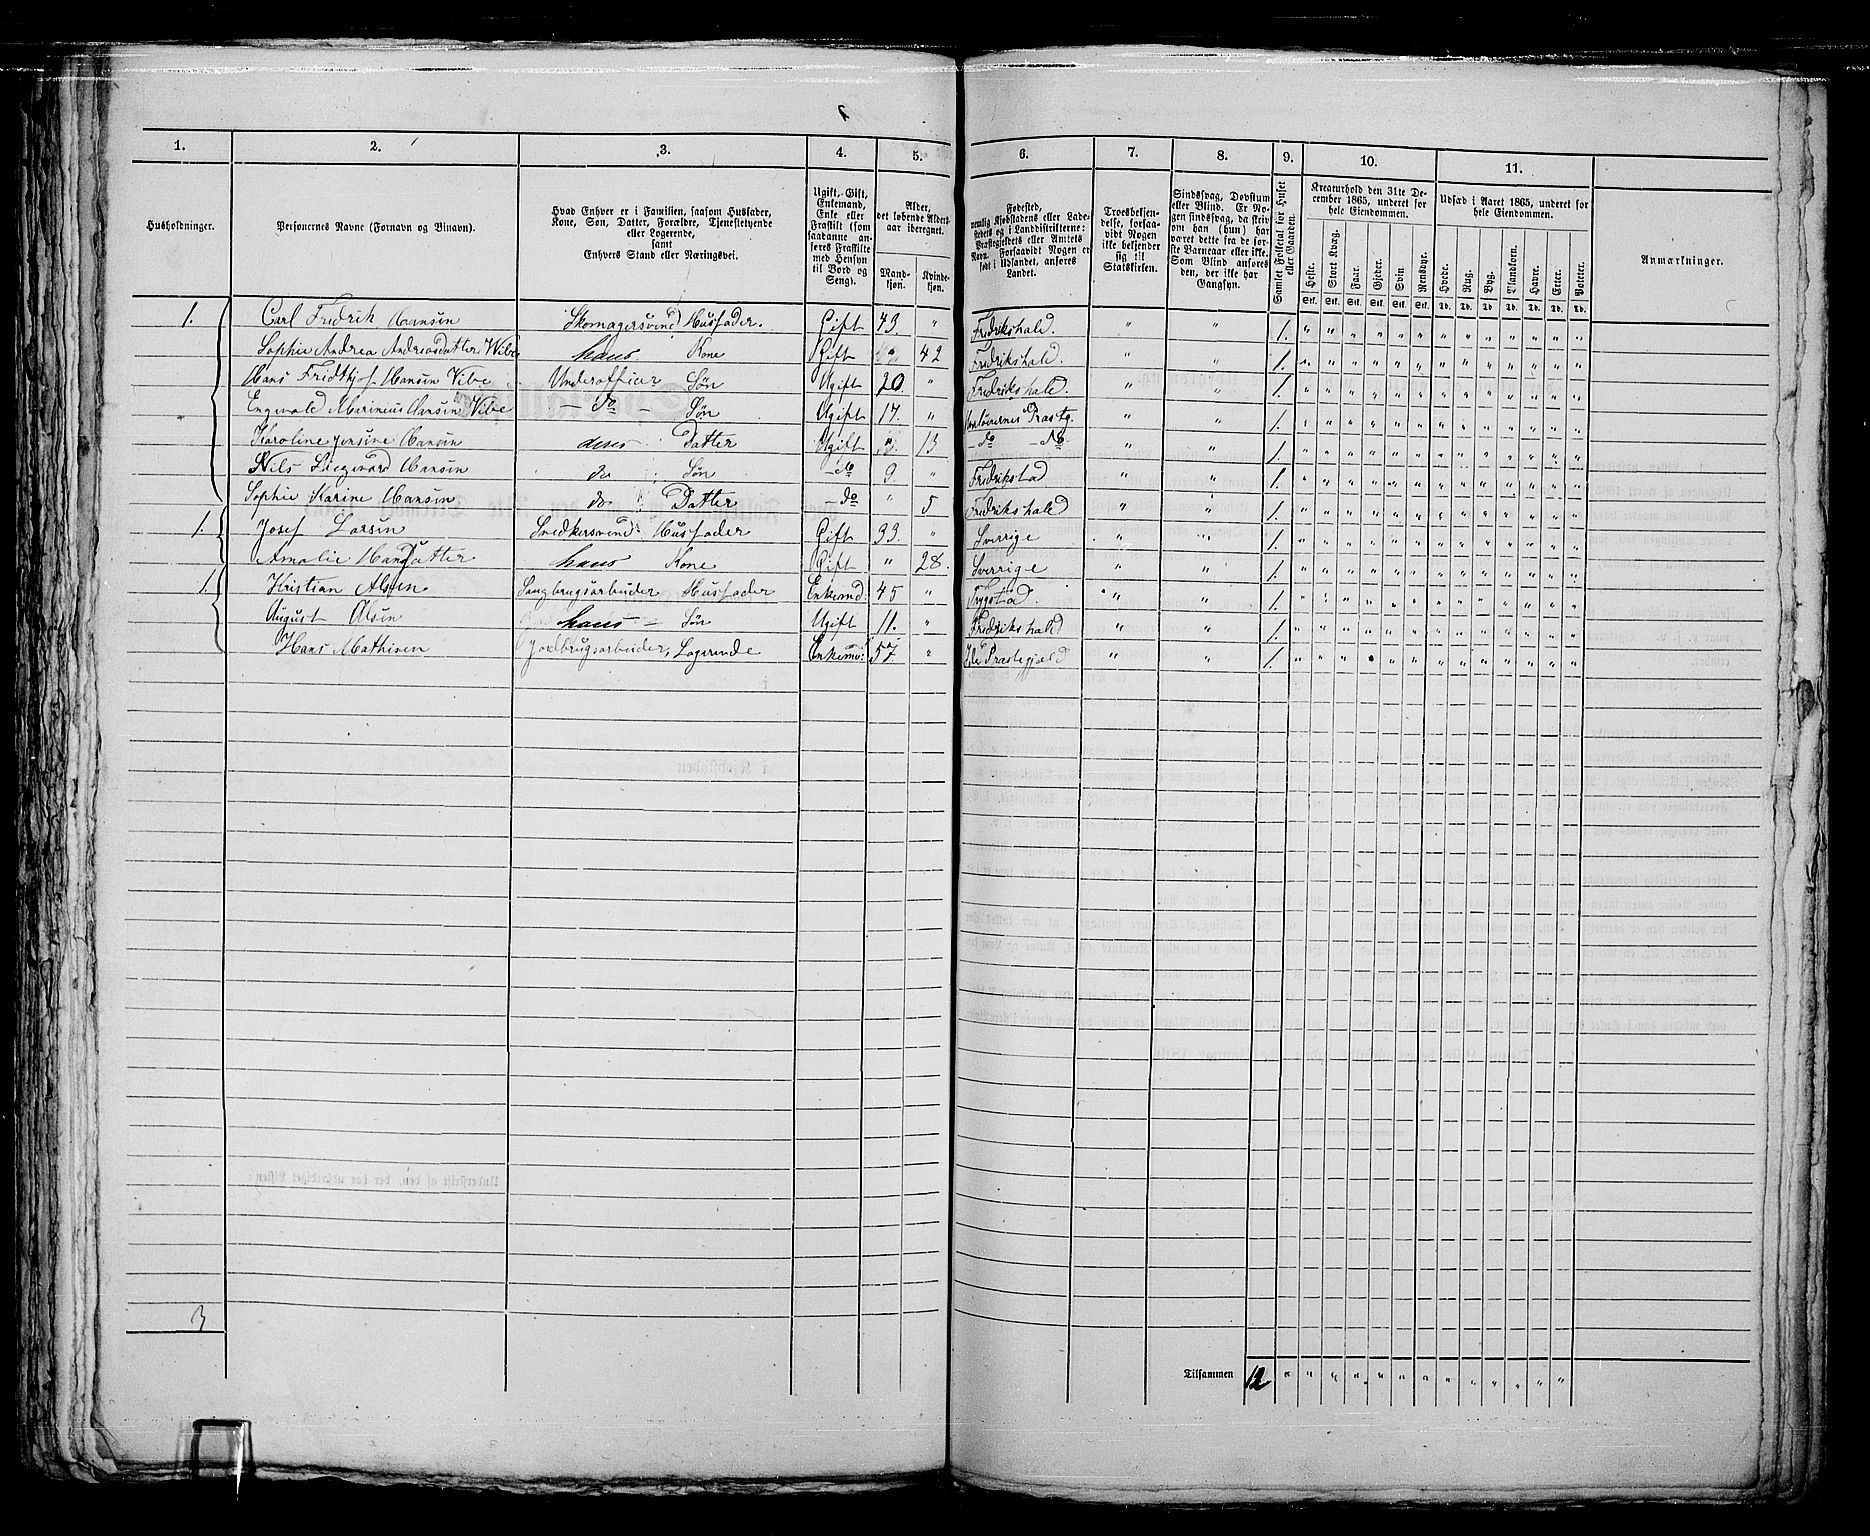 1. 2. 3. 4. 5. 6. 7. 8. 9. 10. 11.
Husholdninger.
Personernes Navne (Fornavn og Tilnavn).
Hvad Enhver er i Familien, saasom Husfader,
Kone, Søn, Datter, Forældre, Tjenestetyende
eller Logerende,
samt
Enhvers Stand eller Næringsvei.
Ugift, Gift,
Enkemand,
Enke eller
Fraskilt (som
saadanne an-
føres Fraskilte
med Hensyn
til Bord og
Seng).
Alder,
det løbende Alders-
aar iberegnet.
Mand-
kjøn.
Kvinde-
kjøn.
Fødested,
nemlig Kjøbstadens eller Lade-
stedets og i Landdistrikterne:
Præstegjeldets eller Amtets
Navn. Forsaavidt Nogen er
født i Udlandet, anføres
Landet.
Troesbekjen-
delse, forsaa-
vidt Nogen
ikke bekjender
sig til
Statskirken.
Sindssvag, Døvstum
eller Blind. Er No-
gen sindssvag, da skriv
om han (hun) har
været dette fra de før-
ste Barneaar eller ikke.
Som Blind anføres
den, der ikke har
Gangsyn.
Samlet Folketal for Huset
eller Gaarden.
Kreaturhold den 31te De-
cember 1865, underet for
hele Eiendommen.
Heste. Stort Kvæg. Faar. Gjeder. Svin. Rensdyr.
Stk. Stk. Stk. Stk. Stk. Stk.
Udsæd i Aaret 1865, underet for
hele Eiendommen.
Hvede. Rug. Byg. Blandkorn. Havre. Erter. Poteter.
Td. Td. Td. Td. Td. Td. Td.
Anmærkninger.
1. Carl Fredrik Hansen Skomagersvend Husfader. Gift 43. " Fredrikshald. " " 1. " " " " " " " " " " " " "
Sophie Andrea Andreasdatter Wibe hans Kone Gift " 42 Fredrikshald. " " 1. " " " " " " " " " " " " "
Hans Fridthjof Hansen Vibe Underofficier Søn Ugift 20 " Fredrikshald. " " 1. " " " " " " " " " " " " "
Engvald Marinius Hansen Vibe — do — Søn Ugift 17. " Præstg. " " 1. " " " " " " " " " " " " "
Karoline Jensine Hansen deres Datter Ugift " 13 — do — do. " " 1. " " " " " " " " " " " " "
Nils Hansen do Søn — do 9. " Fredrikstad " " 1. " " " " " " " " " " " " "
Sophie Karine Hansen do Datter — do " 5 Fredrikshald " " 1. " " " " " " " " " " " " "
1. Josef Larsen Snedkersvend: Husfader Gift 33. " Sverrige " " 1. " " " " " " " " " " " " "
Amalie Hansdatter hans Kone Gift " 28. Sverrige " " 1. " " " " " " " " " " " " "
1. Kristian Olsen Saugbrugsarbeider Husfader Enkemd. 45 " Trygstad. " " 1. " " " " " " " " " " " " "
August Olsen hans — Søn Ugift 11. " Fredrikshald " " 1. " " " " " " " " " " " " "
Hans Mathisen Jordbrugsarbeider, Logerende Enkemd: 57 " Ide Præstegjæld " " 1. " " " " " " " " " " " " "
3
Tilsammen 12 " " " " " " " " " " " "